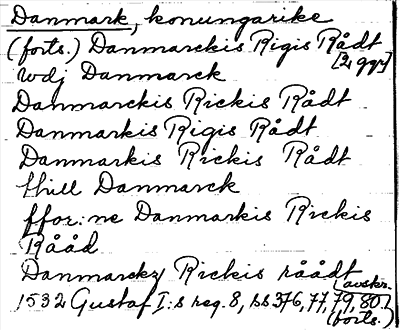 Danmark, konungarike
(forts.) Danmarckis Rigis Rådt
[2 ggr]
wdj Danmarck
Danmarckis Rickis Rådt
Danmarkis Rigis Rådt
Danmarkis Rickis Rådt
thill Danmarck
ffor:ne Danmarkis Rickis
Rååd
Danmarckz Rickis råådt
[avskr.
1532 Gustaf I:s reg. 8, ss 376, 77, 79, 80]
(forts.)